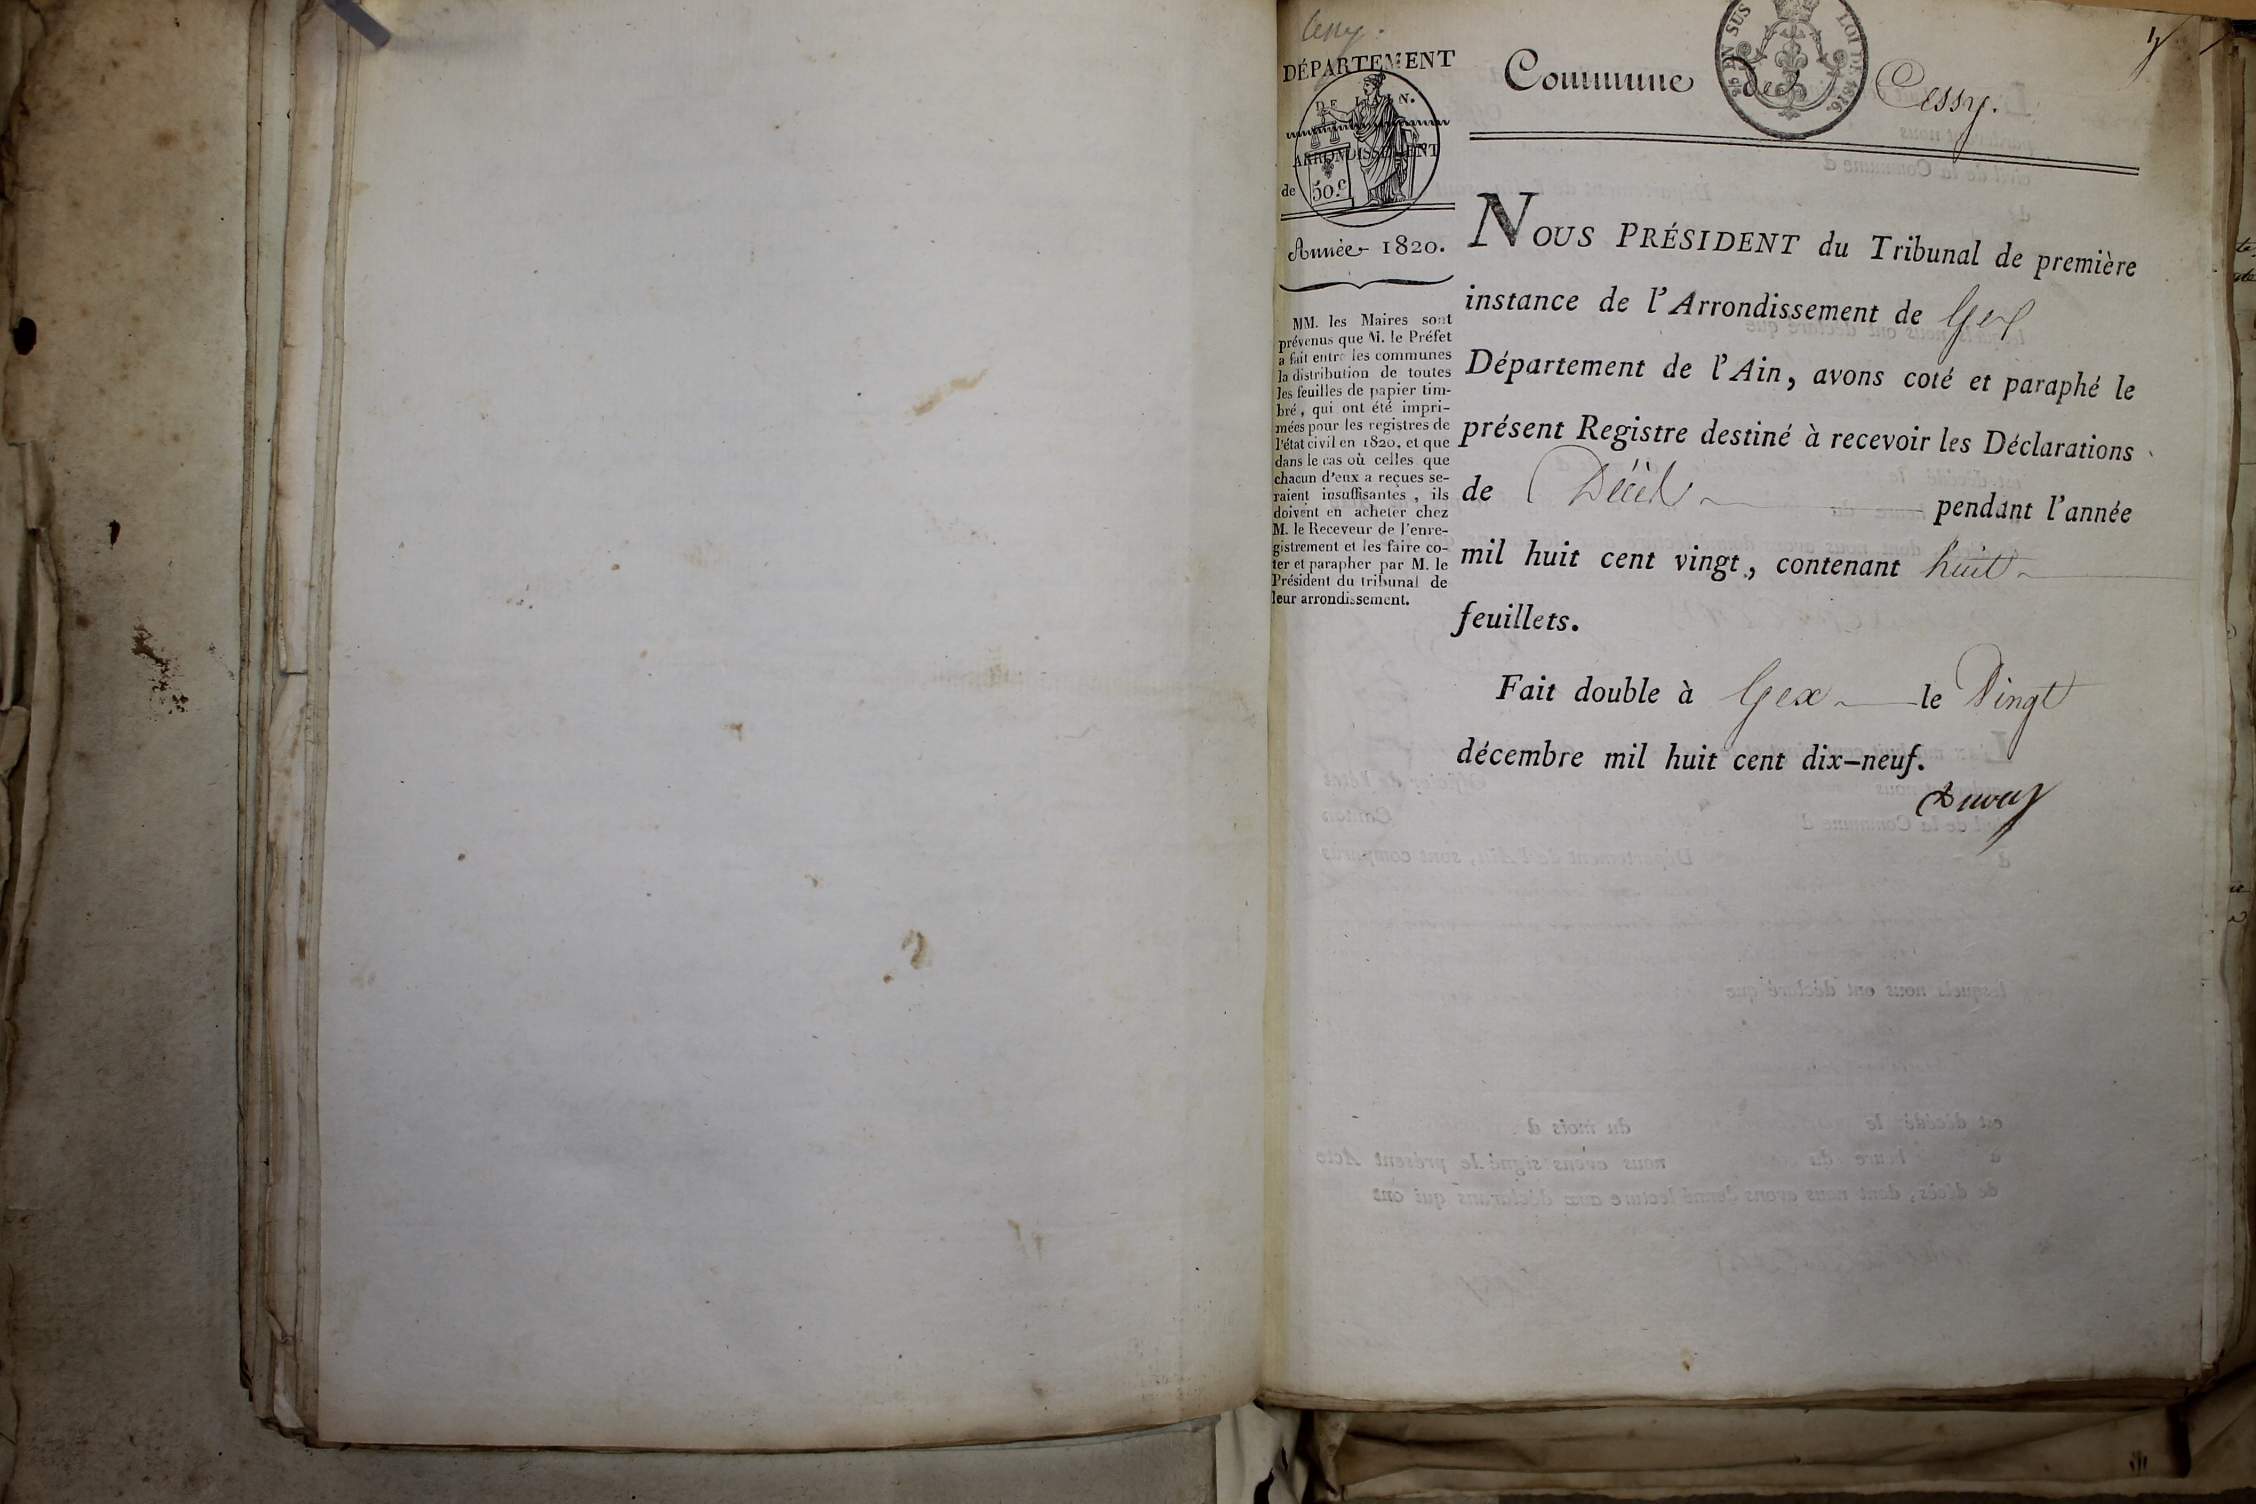 Cessy.
DÉPARTEMENT
DE L'AIN.
ARRONDISSEMENT
de
50.c
Année 1820.
MM. les Maires sont
prévenus que M. le Préfet
a fait entre les communes
la distribution de toutes
les feuilles de papier tim-
bré, qui ont été impri-
mées pour les registres de
l'état civil en 1820, et que
dans le cas où celles que
chacun d'eux a reçues se-
raient insuffisantes, ils
doivent en acheter chez
M. le Receveur de l'enre-
gistrement et les faire co-
ter et parapher par M. le
Président du tribunal de
leur arrondissement.
Commune de Cessy.
EN SUS LOI DE 1816.
NOUS PRÉSIDENT du Tribunal de première
instance de l'Arrondissement de Gex
Département de l'Ain, avons coté et paraphé le
présent Registre destiné à recevoir les Déclarations
de Décès pendant l'année
mil huit cent vingt, contenant huit
feuillets.
Fait double à Gex le Vingt
décembre mil huit cent dix-neuf.